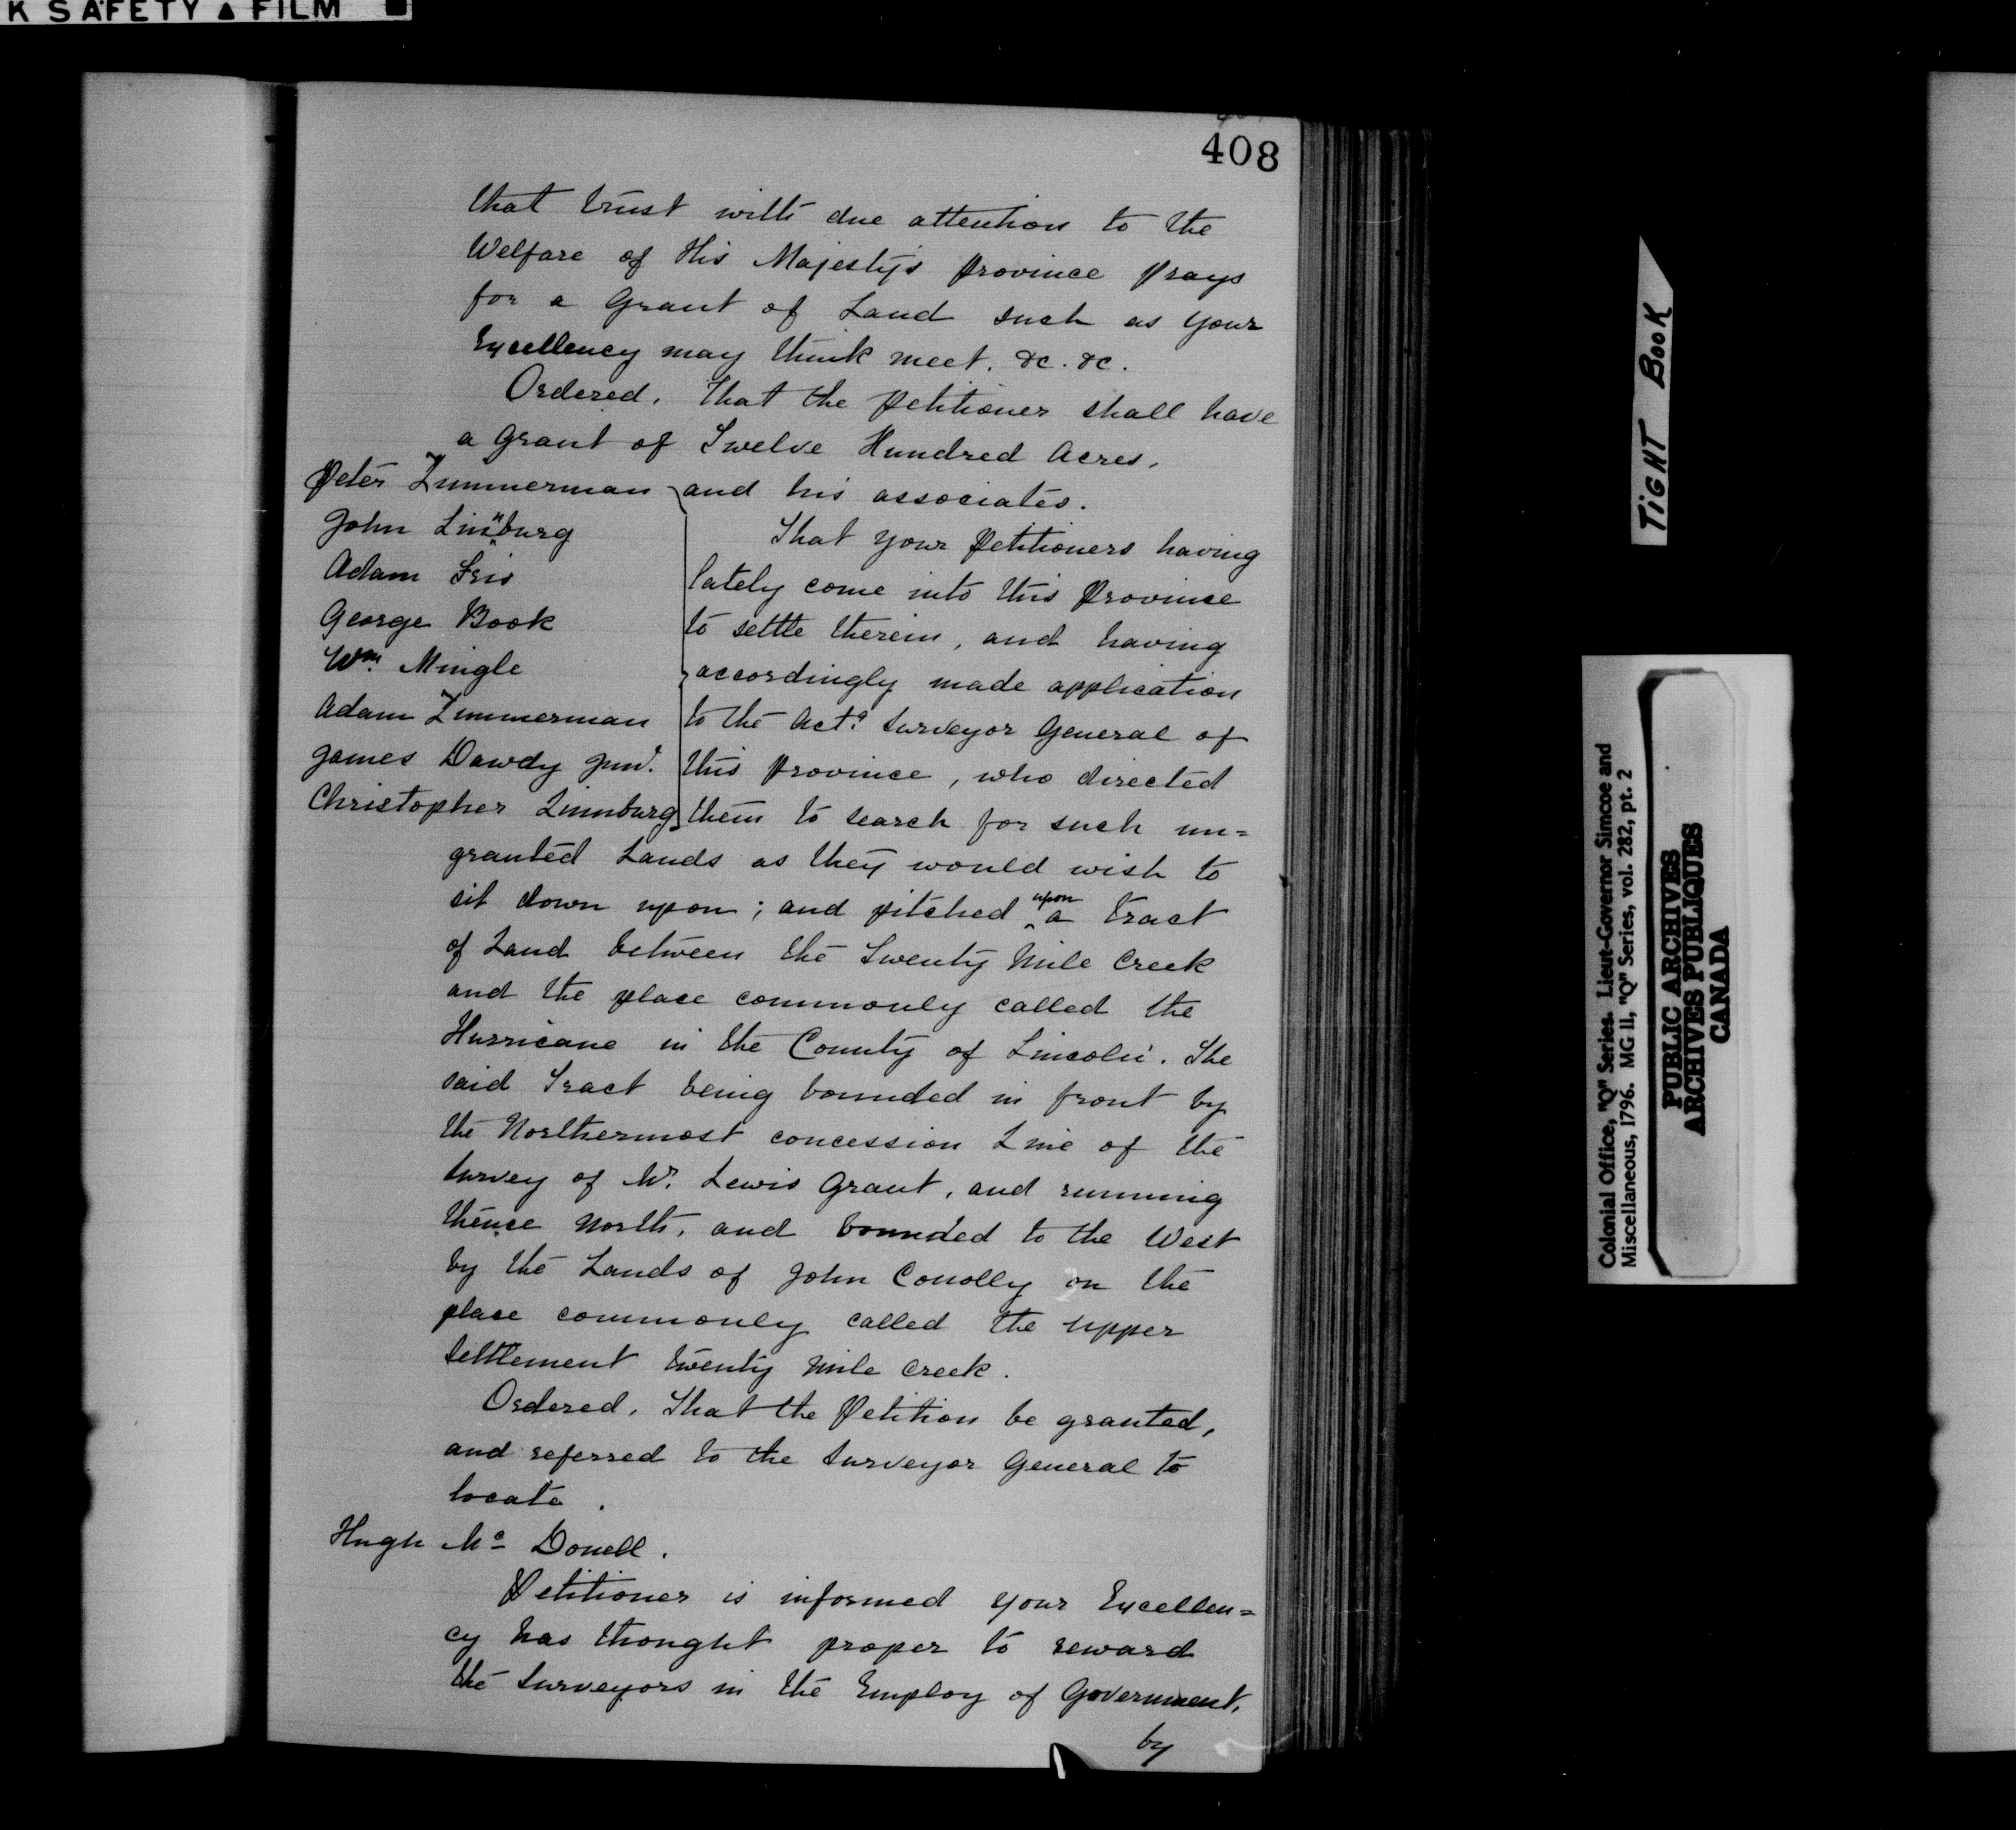 K SAFETY ▲ FILM
408
that trust with due attention to the
Welfare of His Majesty's Province prays
for a Grant of Land such as your
Excellency may think meet. &c. &c.
Ordered, that the Petitioner shall have
a grant of Twelve Hundred Acres.
Peter Zimmerman and his associates.
John Linnburg
Adam
George Book
Wm. Mingle
Adam Zimmerman
James Dawdy Junr.
Christopher Linnburg
That your Petitioners having
lately come into this Province
to settle therein, and having
accordingly made application
to the Actg Surveyor General of
this Province, who directed
them to search for such un=
granted Lands as they would wish to
sit down upon; and pitched upon a tract
of Land between the Twenty Mile Creek
and the place commonly called the
Hurricane in the County of Lincoln. The
said Tract being bounded in front by
the Northermost concession Line of the
survey of Mr. Lewis Grant, and running
thence North, and bounded to the West
by the Lands of John Conolly on the
place commonly called the upper
settlement twenty Mile Creek.
Ordered, That the Petition be granted,
and referred to the Surveyor General to
locate.
Hugh Mc Donell.
Petitioner is informed your Excellen=
cy has thought proper to reward
the Surveyors in the Employ of Government,
by
TIGHT BOOK
Colonial Office, "Q" Series. Lieut-Governor Simcoe and
Miscellaneous, 1796. MG 11, "Q" Series, vol. 282, pt. 2
PUBLIC ARCHIVES
ARCHIVES PUBLIQUES
CANADA